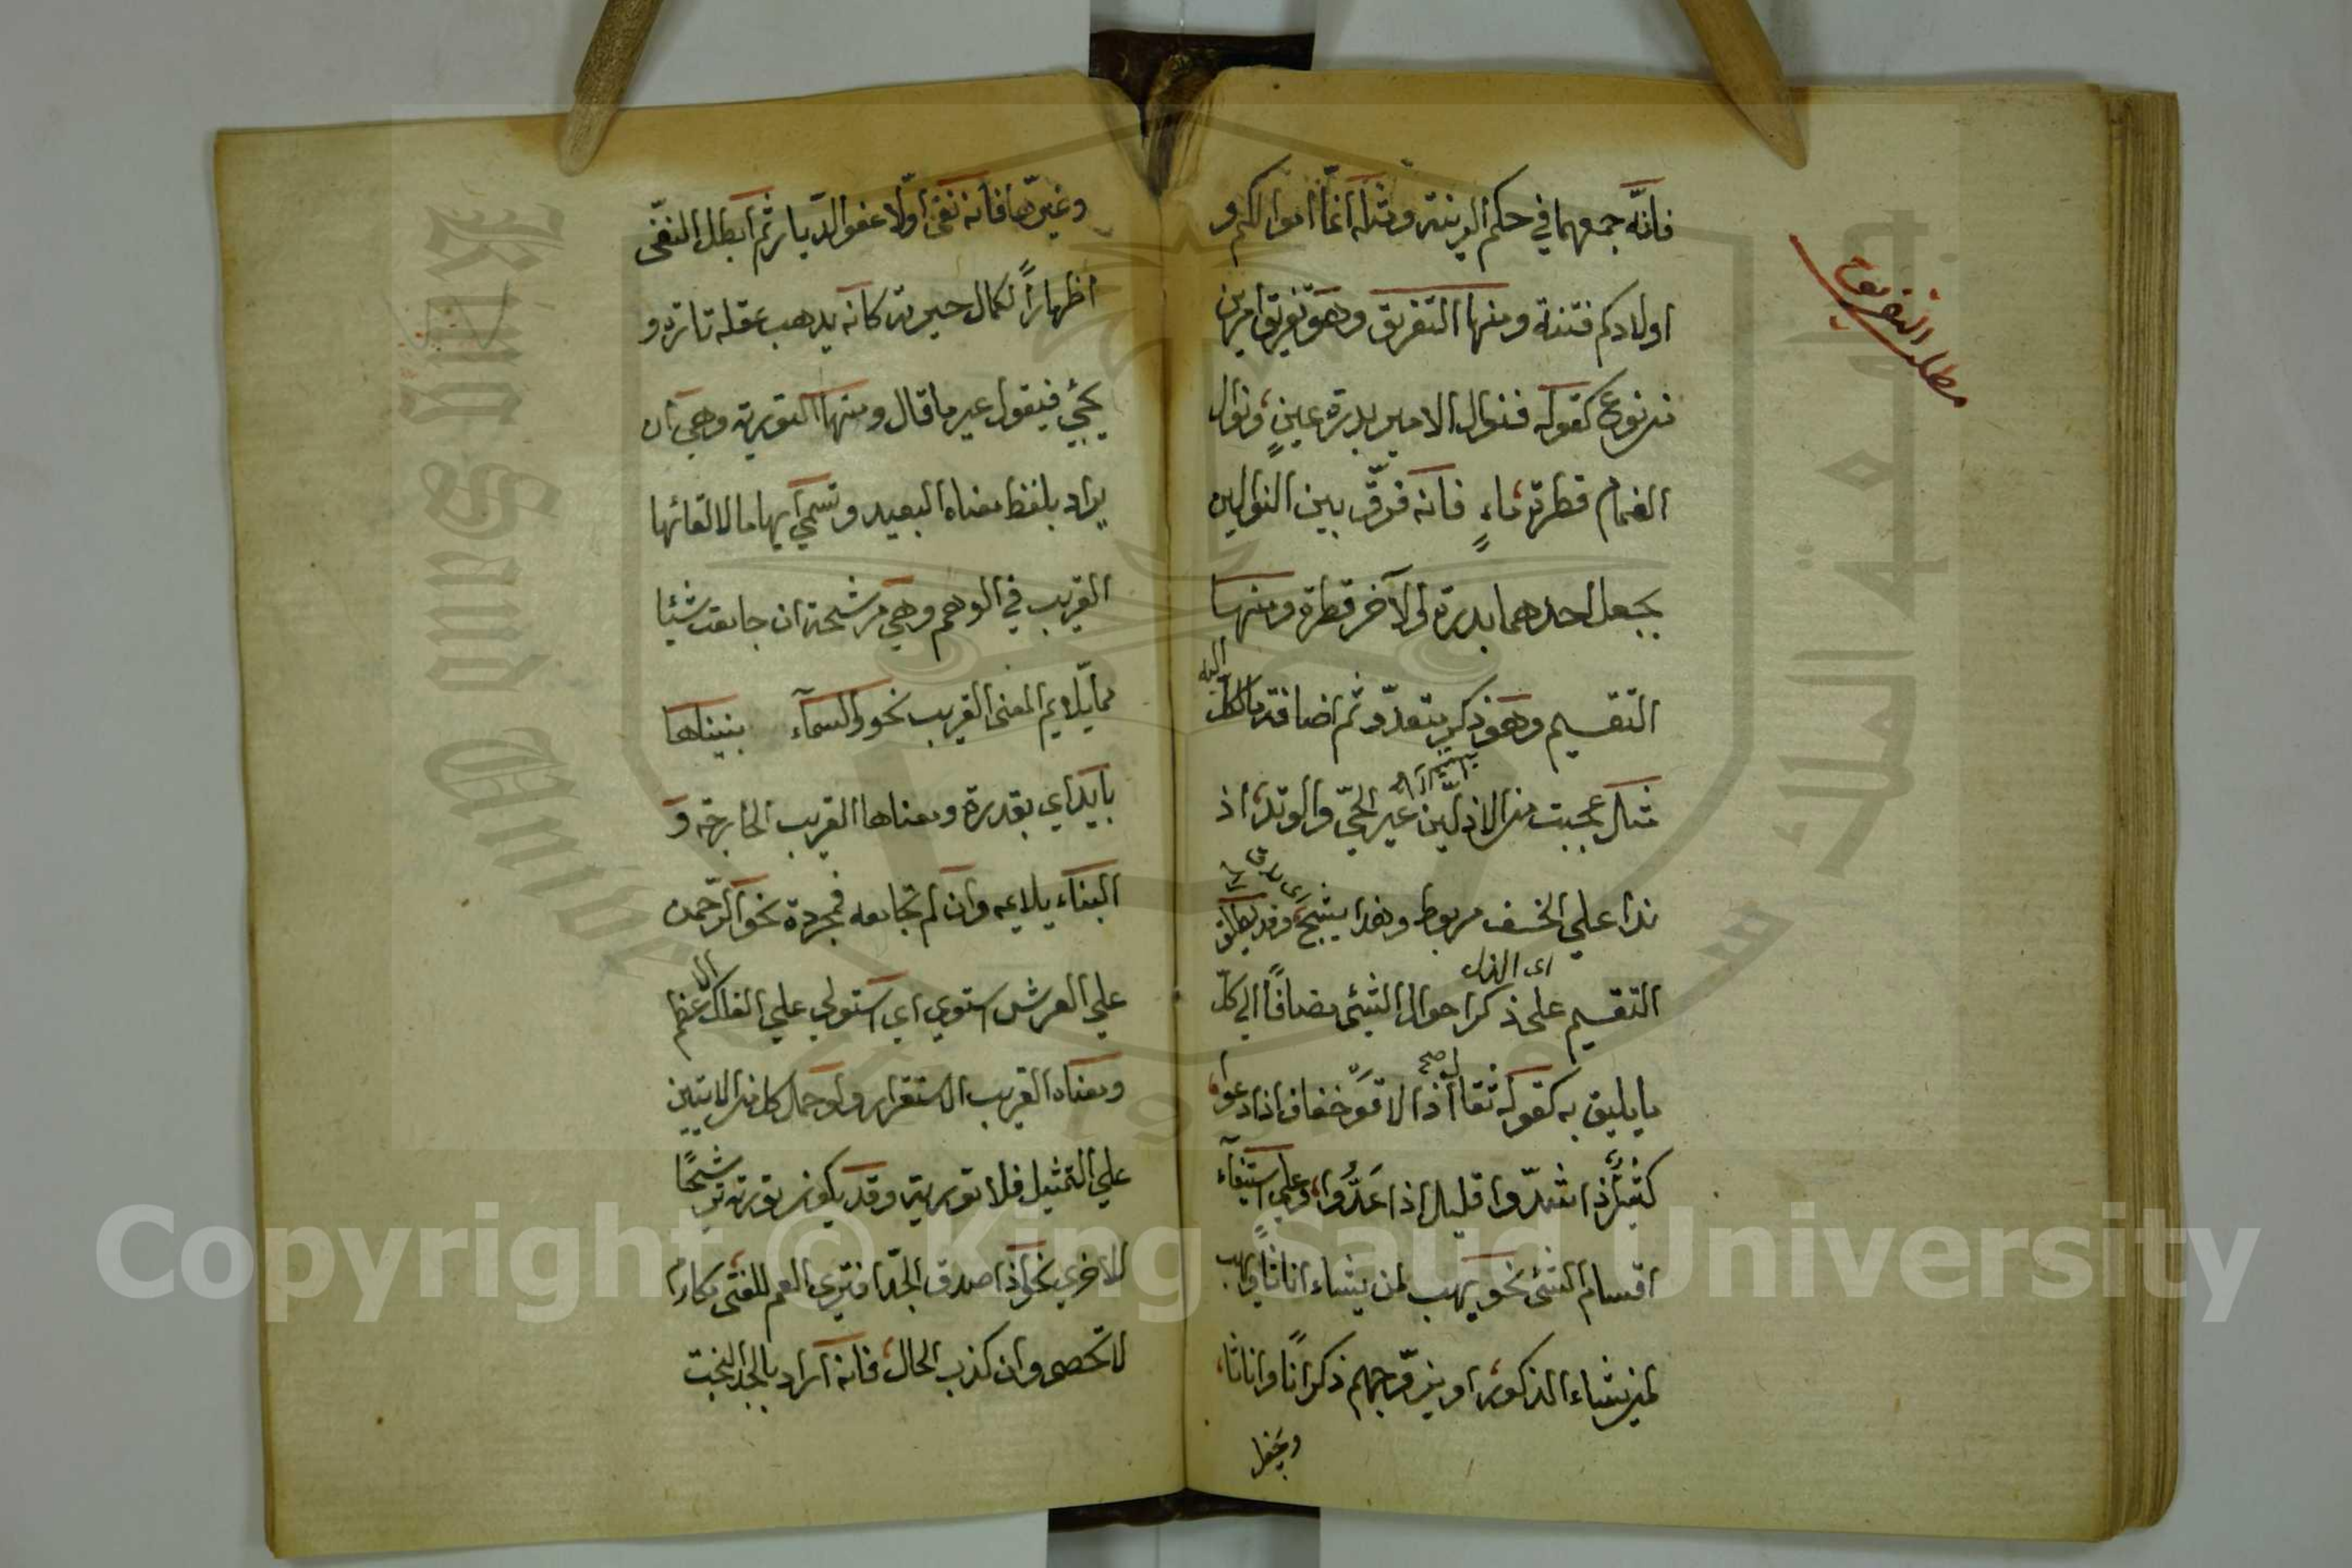 فانّه جمعهما في حكم الزينة ومثله انّما اموالكم و
اولادكم فتنة ومنها التفريق وهو تفريق امرين
من نوع كقوله فنوال الامير بدرة عين ونوال
الغمام قطرة ماءٍ فانه فرّق بين النوالين
بجعل احدهما بدرة والآخر قطرة ومنها
التقسيم وهو ذكر متعدّد ثم اضافة ما لكلّ
اليه
مثال عجبت من الاذلّين عير الحيّ والوتد اذ
ذا علي الخسف مربوط وهذا يشجّ وقد يطلق
التقسيم على ذكر احوال الشئ مضافاً الي كلّ
ما يليق به كقوله ثقال اذا لاقوا خفاف اذا دعوا
كثير اذا شدّوا قليل اذا عدّوا وعلي استيفآء
اقسام الشئ نحو يهب لمن يشاء اناثاً ويهب
لمن يشاء الذكور او يزوّجهم ذكراناً واناثا
ويجعل
مطلب التفريق
وغيّرها فانه نفى اوّلا عفو الدّيار ثم ابطل النفى
اظهاراً لكمال حيرته كانه يذهب عقله تارة و
يجئي فيقول غير ما قال ومنها التورية وهي ان
يراد بلفظ معناه البعيد وتسمى ايهاما لالقائها
القريب في الوهم وهي مرشحة ان جامعت شيئا
ممّا يلايم المعنى القريب نحو والسمآء بنيناها
بايد اي بقدرة ومعناها القريب الجارحة و
البناء يلايمه وان لم تجامعه فمجردة نحو الرّحمن
علي العرش استوي اي استولي علي الفلك الاعظم
ومعناه القريب الاستقرار ولو حمل كل من الايتين
علي التمثيل فلا تورية وقد يكون تورية ترشيحًا
للاخري نحو اذا صدق الجدّ افتري العم للفتى مكارم
لا تخصى وان كذب الخال فانه اراد بالجد البخت
King Saud University
Copyright © King Saud University